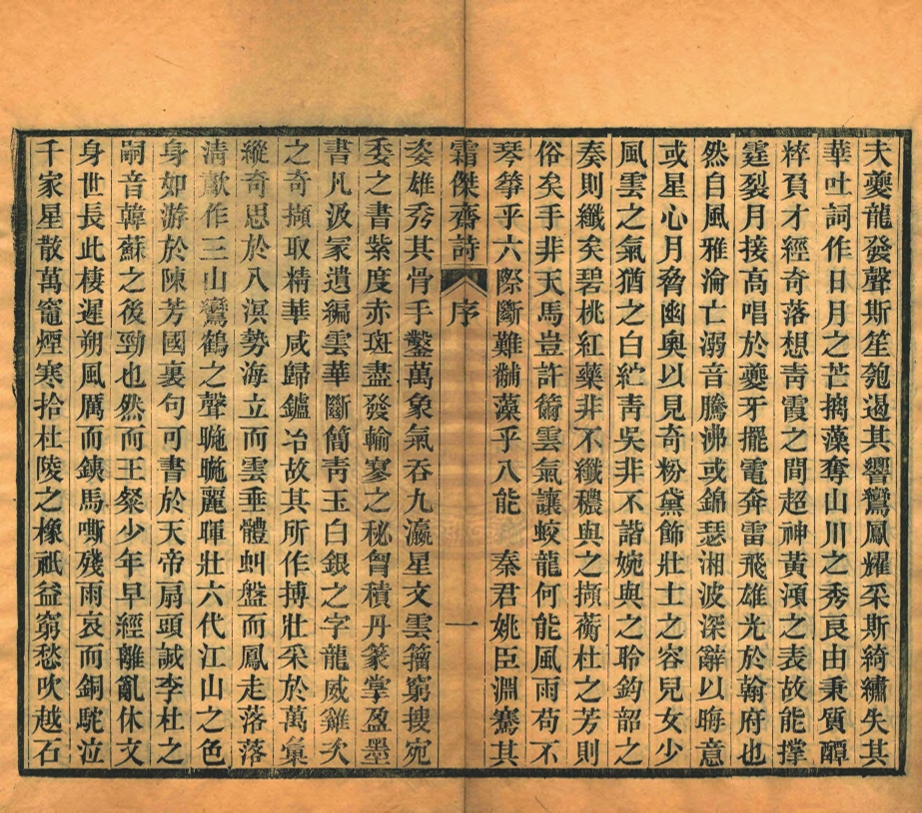 夫夔龍發聲斯笙匏遏其響鸞鳳耀采斯綺繡失其
華吐詞作日月之芒摛藻奪山川之秀良由秉質醰
粹負才經奇落想靑霞之間超神黃澒之表故能撑
霆裂月接高唱於夔牙擺電奔雷飛雄光於翰府也
然自風雅淪亡溺音騰沸或錦瑟湘波深辭以晦意
或星心月脅幽奧以見奇粉黛飾壯士之容兒女少
風雲之氣猶之白紵靑吳非不諧婉與之聆鈞韶之
奏則纖矣碧桃紅藥非不纖穠與之擷蘅杜之芳則
俗矣手非天馬豈許籋雲氣讓蛟龍何能風雨苟不
琴箏乎六際斷難黼藻乎八能　秦君姚臣淵騫其
霜傑齋詩　序　一
姿雄秀其骨手鑿萬象氣吞九瀛星文雲籀窮搜宛
委之書紫度赤斑盡發輸寥之秘胷積丹篆掌盈墨
書凡汲冢遺編雲華斷簡靑玉白銀之字龍威雞次
之奇擷取精華咸歸鑪冶故其所作摶壯采於萬彙
縱奇思於八溟勢海立而雲垂體虯盤而鳳走落落
淸歗作三山鸞鶴之聲䑛䑛麗暉壯六代江山之色
身如游於陳芳國裏句可書於天帝扇頭誠李杜之
嗣音韓蘇之後勁也然而王粲少年早經離亂休文
身世長此棲遲朔風厲而銕馬嘶殘雨哀而銅駝泣
千家星散萬竈煙寒拾杜陵之橡祇益窮愁吹越石